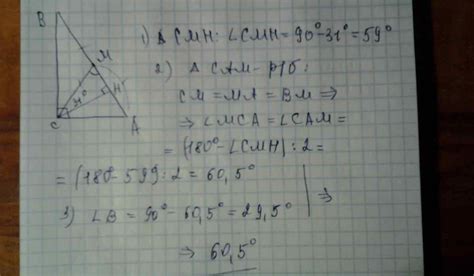 B
M
H
31°
C
A
1) Δ CMH: ∠CMH = 90° - 31° = 59°
2) Δ CAM - р/б:
CM = MA = BM ⇒
⇒ ∠MCA = ∠CAM =
= (180° - ∠CMH) : 2 =
= (180° - 59°) : 2 = 60,5°
3) ∠B = 90° - 60,5° = 29,5° ⇒
⇒ 60,5°